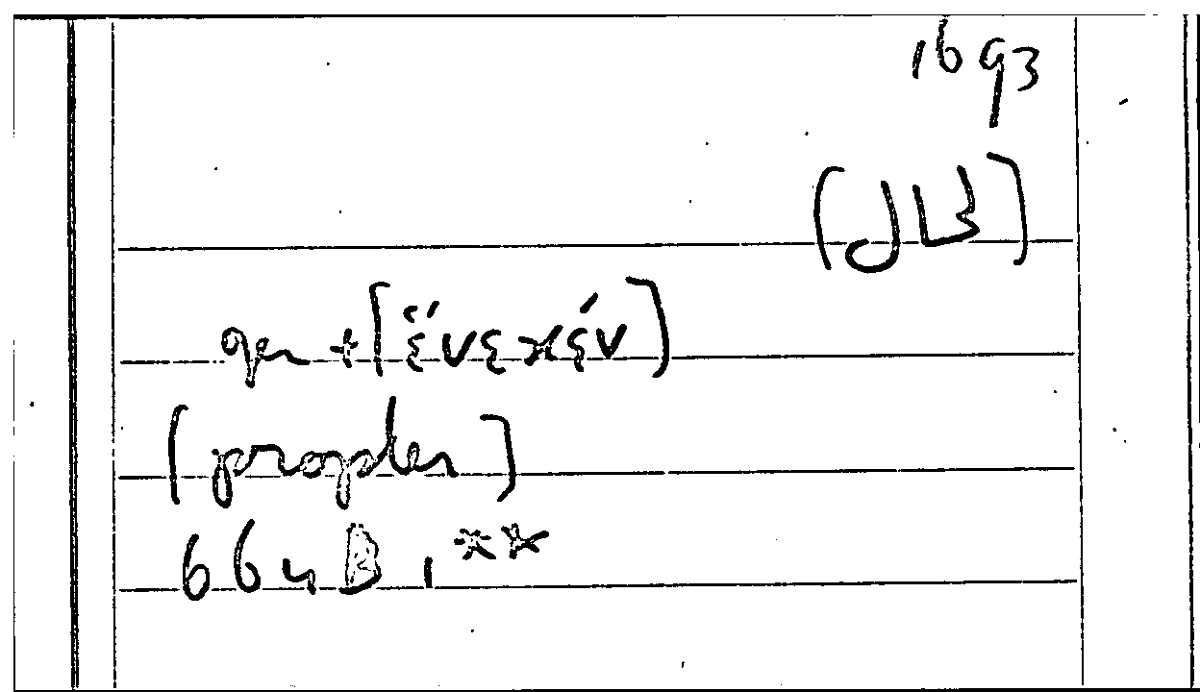 1693
(JB)
gen + [ἕνεκέν]
(propter)
664B,**